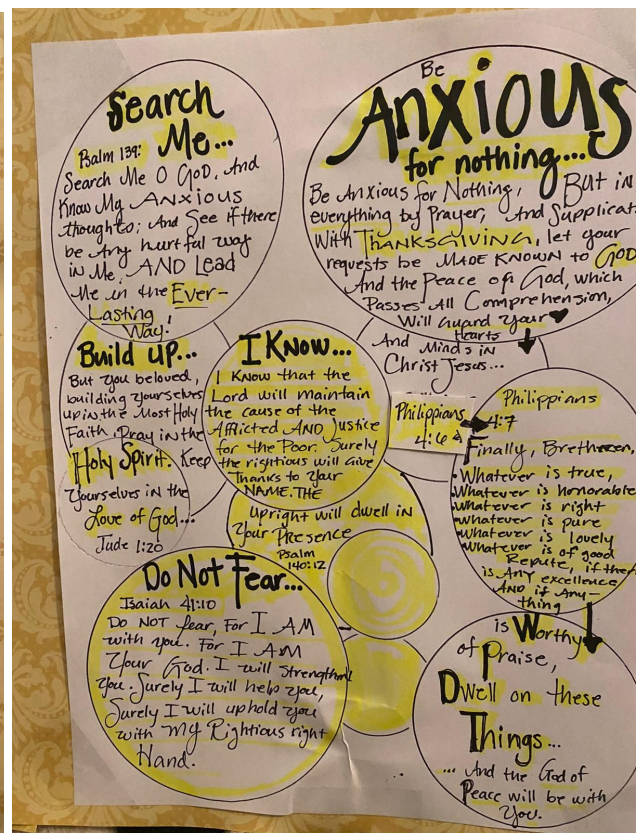 Search
Me...
Psalm 139:
Search Me O GOD, And
Know My ANXIOUS
thoughts; And See if there
be Any hurtful way
in Me, AND Lead
Me in the Ever-
Lasting
Way!
Be
Anxious
for nothing...
Be Anxious for Nothing, But in
everything by Prayer, And Supplicat
With THANKSGIVING, let your
requests be MADE KNOWN to GOD
And the Peace of God, which
Passes All Comprehension,
Will guard your
Hearts
And Minds in
Christ Jesus...
Philippians
4:6
Build up...
But you beloved,
building yourselves
up in the Most Holy
Faith. Pray in the
Holy Spirit. Keep
Yourselves in the
Love of God...
Jude 1:20
I Know...
I Know that the
Lord will maintain
the cause of the
Afflicted AND Justice
for the Poor. Surely
the rightious will Give
Thanks to Your
NAME. THE
Upright will dwell in
Your Presence
Psalm
140:12
Philippians
4:7
Finally, Brethren,
• Whatever is true,
Whatever is honorable
• Whatever is right
• Whatever is pure
• Whatever is lovely
• Whatever is of good
Repute, if ther
is Any excellence
AND if Any-
thing
is Worthy
of Praise,
Dwell on these
Things...
... And the God of
Peace will be with
You.
Do Not Fear...
Isaiah 41:10
Do NOT fear, For I AM
with you. For I AM
Your God. I will strengthen
You. Surely I will help you,
Surely I will uphold you
with my Rightious right
Hand.